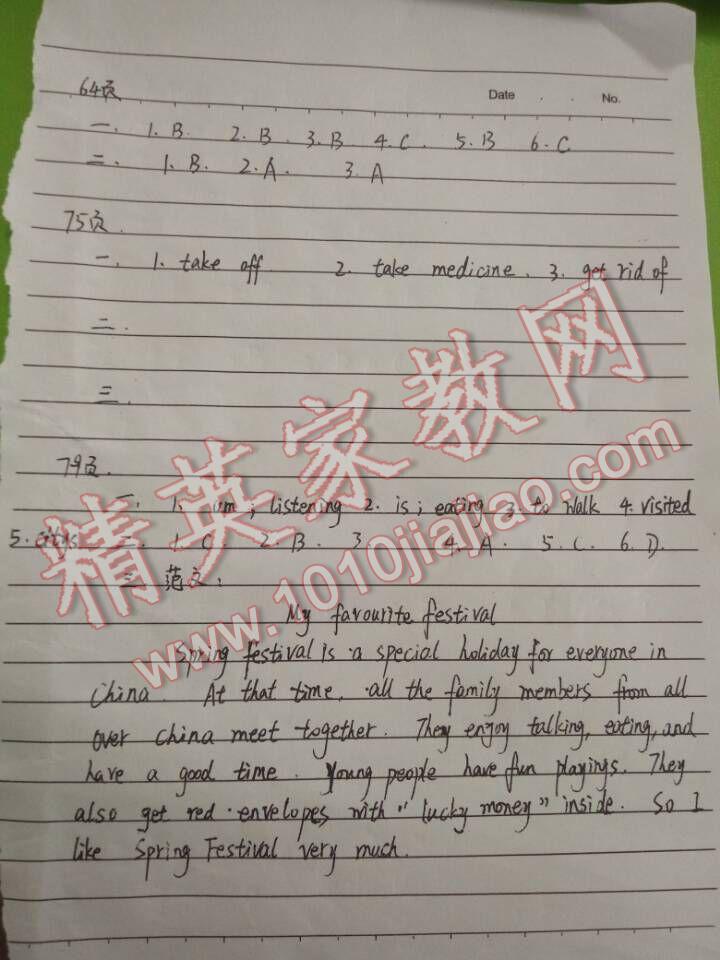 Date . . No.
64页
一. 1. B. 2. B. 3. B 4. C. 5. B 6. C
二. 1. B. 2. A. 3. A
75页.
一. 1. take off. 2. take medicine. 3. get rid of
二.
三.
79页.
一. 1. am; listening 2. is; eating 3. to walk 4. visited
5. 二. 1. C. 2. B. 3. 4. A. 5. C. 6. D.
三. 范文:
My favourite festival
Spring festival is a special holiday for everyone in
China. At that time, all the family members from all
over China meet together. They enjoy talking, eating, and
have a good time. Young people have fun playings. They
also get red envelopes with "lucky money" inside. So I
like Spring Festival very much.
精英家教网
www.1010jiajiao.com